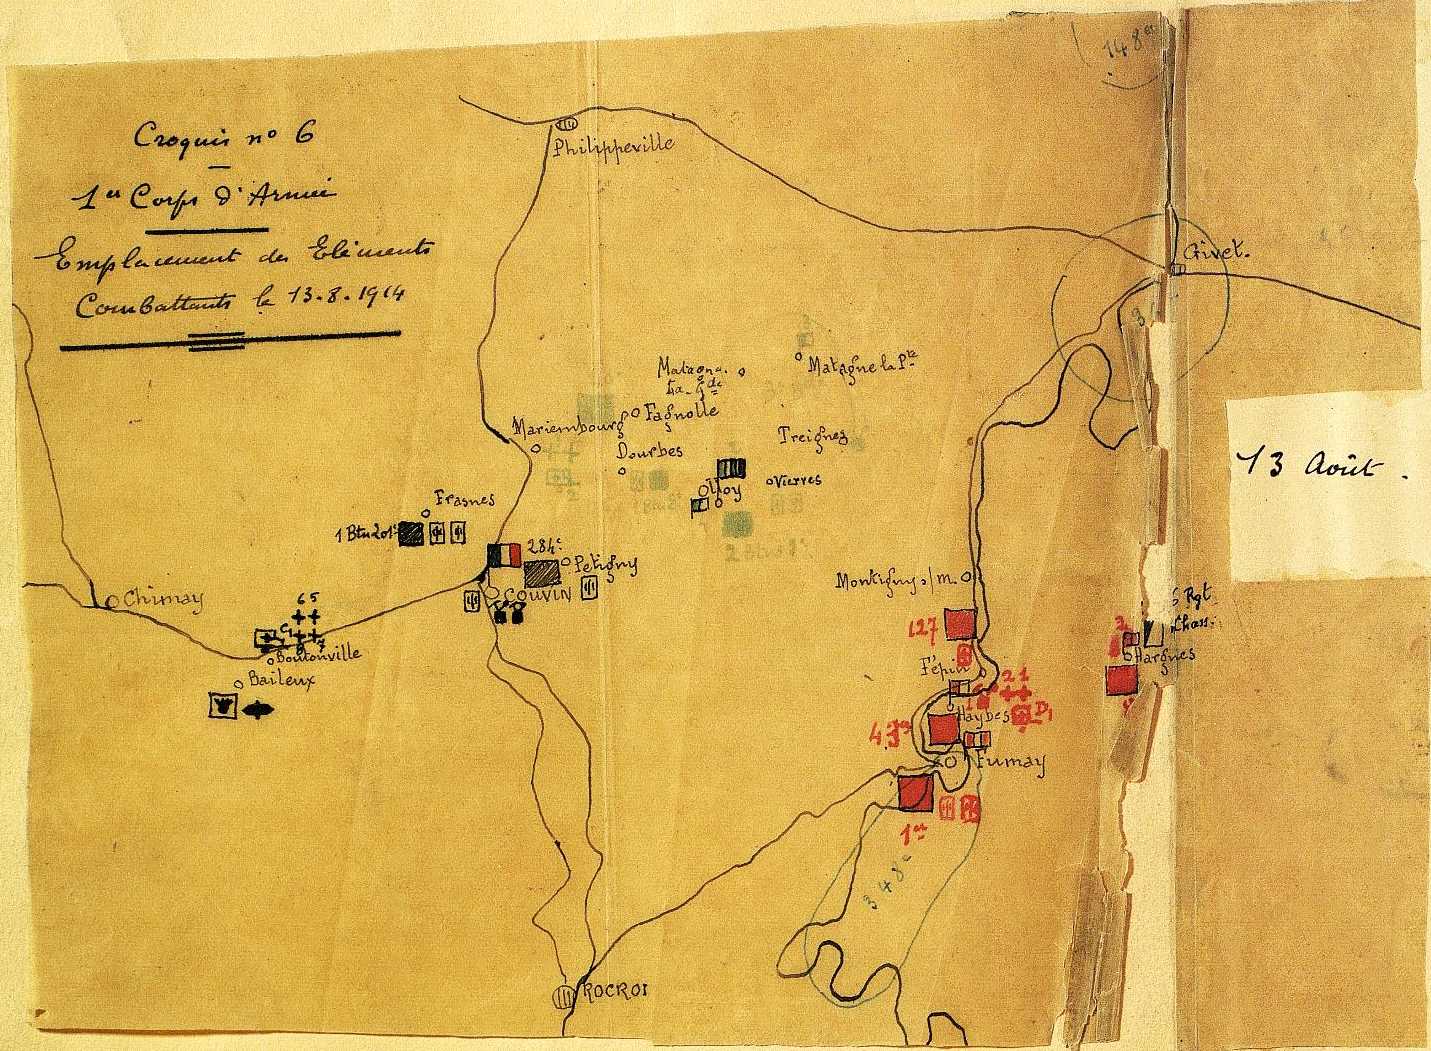 148e
Croquis nº 6
1er Corps d'Armée
Emplacement des Eléments
Combattants le 13.8.1914
Philippeville
Givet.
Matagne la Pte
Fagnolle
Mariembourg
Dourbes
Treignes
13 Août.
Vierves
Frasnes
1 Btn 201e
284e
Petigny
COUVIN
Chimay
65
Boutonville
Baileux
Montigny s/m.
127
Fépin
21
Haybes
D1
43e
Fumay
1er
Rgt
Chass.
Hargnies
348e
ROCROI